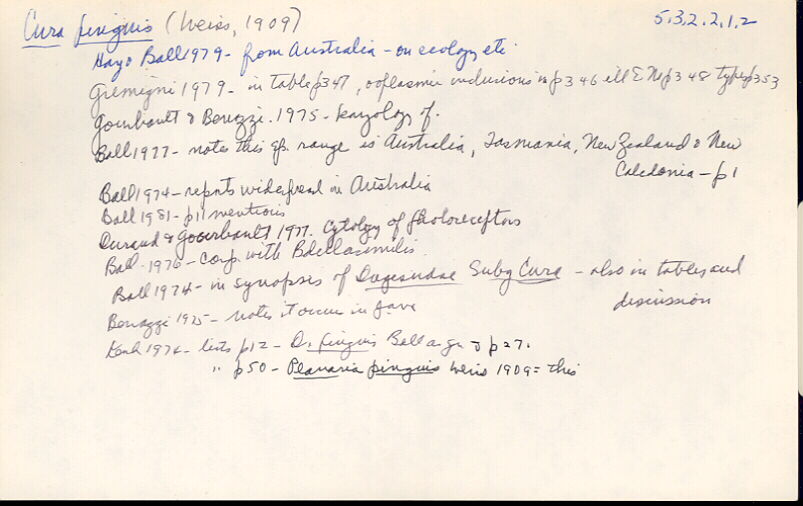 Cura pinguis (Weiss, 1909) 5.3.2.2.1.2
Hay & Ball 1979 - from Australia - on ecology etc
Gremigni 1979 - in table p 347, ooplasmic inclusions in p 346 ill & No p 348 types p 353
Gourbault & Benazzi. 1975 - karyology of.
Ball 1977 - notes this sp. range is Australia, Tasmania, New Zealand & New
Caledonia - p 1
Ball 1974 - reports widespread in Australia
Ball 1981 - p 11 mentions
Durand & Gourbault 1977. Cytology of Photoreceptors
Ball 1976 - comp. with Bdellasimilis.
Ball 1974 - in synopsis of Dugesiidae Subg Cura - also in tables and
discussion
Benazzi 1975 - notes it occurs in Java
1974 - lists p 12 - D. pinguis & p 27.
" p 50 - Planaria pinguis Weiss 1909 = this